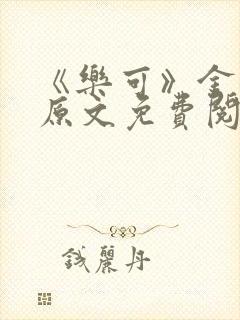 《樂可》金
原文免費閱
錢麗丹